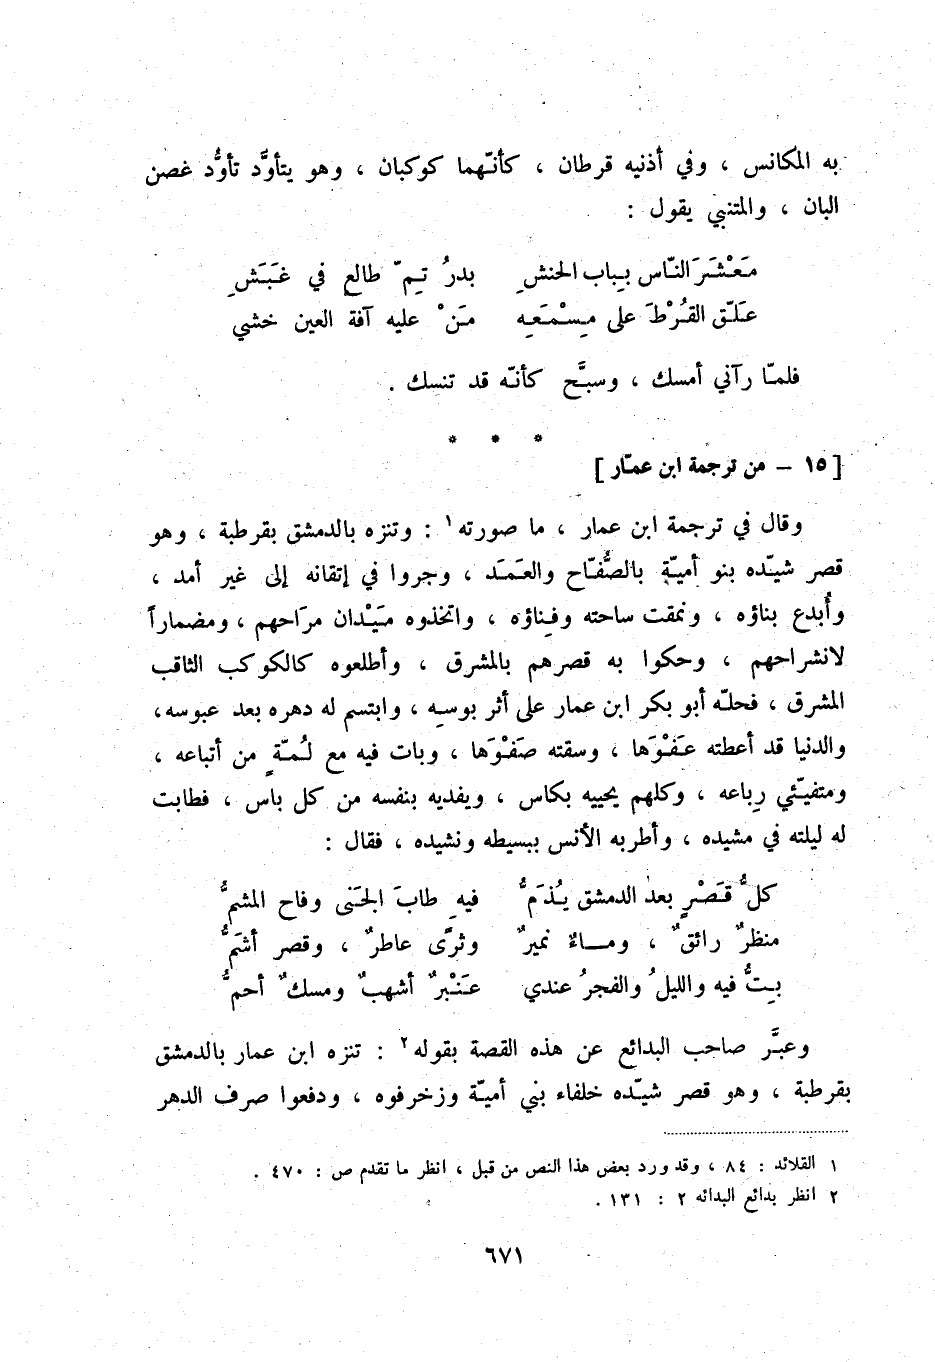 به المكانس ، وفي أذنيه قرطان ، كأنّهما كوكبان ، وهو يتأوَّد تأوُّد غصن
البان ، والمتنبي يقول :
مَعْشَرَ النّاس بِباب الحنشِ بدرُ تِمّ طالعٍ في غَبَشِ
عَلّق القُرْطَ على مِسْمَعِه مَنْ عليه آفة العين خشي
فلمّا رآني أمسك ، وسبَّح كأنّه قد تنسك .
* * *
[ ١٥ – من ترجمة ابن عمّار ]
وقال في ترجمة ابن عمار ، ما صورته١ : وتنزه بالدمشق بقرطبة ، وهو
قصر شيّده بنو أميّة بالصُّفّاح والعَمَد ، وجروا في إتقانه إلى غير أمد ،
وأُبدع بناؤه ، ونمقت ساحته وفِناؤه ، واتخذوه مَيْدان مراحهم ، ومضماراً
لانشراحهم ، وحكوا به قصرهم بالمشرق ، وأطلعوه كالكوكب الثاقب
المشرق ، فحلّه أبو بكر ابن عمار على أثر بوسه ، وابتسم له دهره بعد عبوسه،
والدنيا قد أعطته عَفْوَها ، وسقته صَفْوَها ، وبات فيه مع لُمّةٍ من أتباعه ،
ومتفيّئي رباعه ، وكلهم يحييه بكاس ، ويفديه بنفسه من كل باس ، فطابت
له ليلته في مشيده ، وأطربه الأنس ببسيطه ونشيده ، فقال :
كلُّ قَصْرٍ بعد الدمشق يُذَمُّ فيهِ طابَ الجَنى وفاح المشمُّ
منظرٌ رائقٌ ، ومــاءٌ نميرٌ وثرًى عاطرٌ ، وقصر أشَمُّ
بِتُّ فيه والليلُ والفجرُ عندي عَنْبرٌ أشهبٌ ومسكٌ أحمُّ
وعبَّر صاحب البدائع عن هذه القصة بقوله٢ : تنزه ابن عمار بالدمشق
بقرطبة ، وهو قصر شيّده خلفاء بني أميّة وزخرفوه ، ودفعوا صرف الدهر
١ القلائد : ٨٤ ، وقد ورد بعض هذا النص من قبل ، انظر ما تقدم ص : ٤٧٠ .
٢ انظر بدائع البدائه ٢ : ١٣١ .
٦٧١